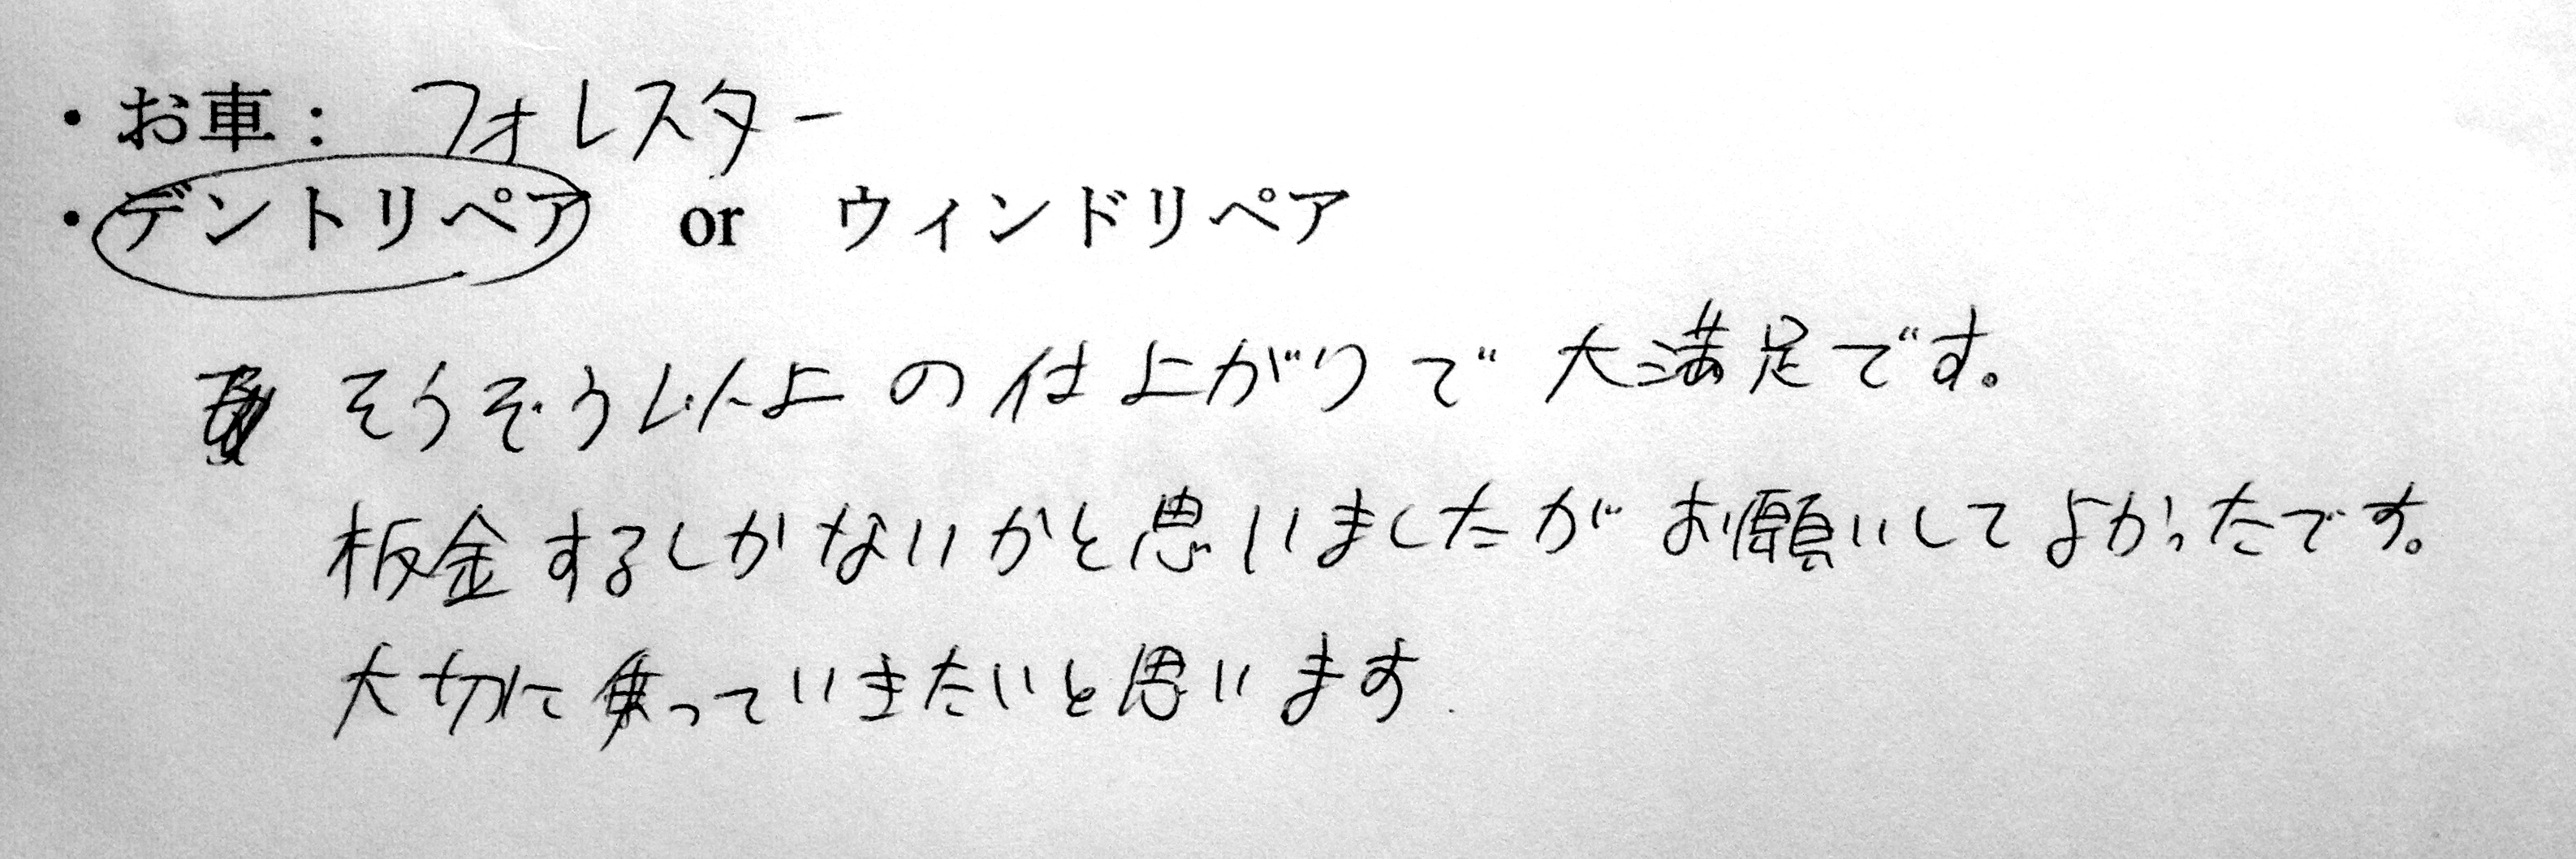 ・お車： フォレスター
・デントリペア or ウィンドリペア
そうぞう以上の仕上がりで大満足です。
板金するしかないかと思いましたがお願いしてよかったです。
大切に乗っていきたいと思います